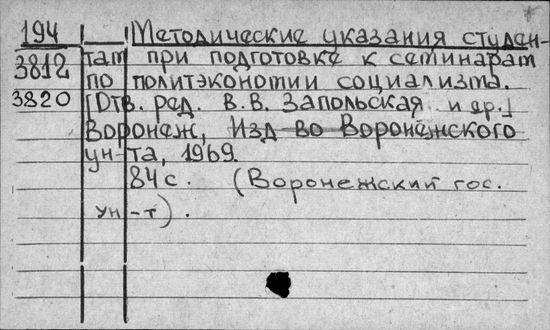 194 Методические указания студен-
3812 там при подготовке к семинарам
по политэкономии социализма.
3820 [Отв. ред. В.В. Запольская и др.]
Воронеж, Изд-во Воронежского
ун-та, 1969.
84 с. (Воронежский гос.
ун-т).